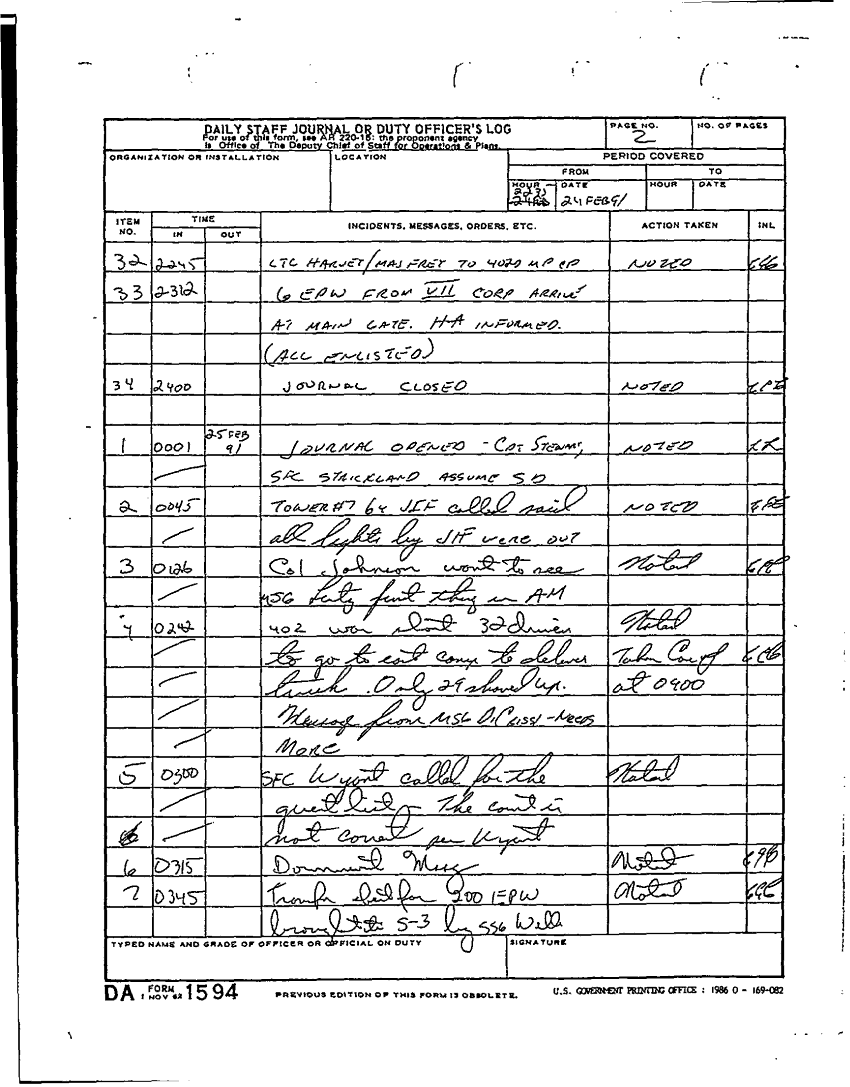 DAILY STAFF JOURNAL OR DUTY OFFICER'S LOG
For use of this form, see AR 220-15: the proponent agency
is Office of The Deputy Chief of Staff for Operations & Plans.
PAGE NO.
2
NO. OF PAGES
ORGANIZATION OR INSTALLATION
LOCATION
PERIOD COVERED
FROM
TO
HOUR
DATE
HOUR
DATE
24 FEB 91
ITEM NO.
TIME
INCIDENTS, MESSAGES, ORDERS, ETC.
ACTION TAKEN
INL
IN
OUT
32 2245 LTC HARVEY/MAJ FREY TO 402D MP CP NOTED
33 2312 6 EPW FROM VII CORP ARRIVE
AT MAIN GATE. HA INFORMED.
(ALL ENLISTED)
34 2400 JOURNAL CLOSED NOTED
1 0001 25 FEB 91 JOURNAL OPENED - CPT STEWART, NOTED
SFC STRICKLAND ASSUME SD
2 0045 TOWER #7 by JIF called said NOTED
all lights by JIF were out
3 0126 Col Johnson want to see Noted
first thing in AM
4 0242 402 was short 32 drivers Noted
to go to east comp to deliver Taken Care of
truck. Only 29 showed up. at 0400
Message from MSG - Needs
MORE
5 0300 SFC Wyont called for the Noted
guest list - The count is
not correct per Wyont
6 0315 Noted
7 0345 Transfer for 200 IEPW Noted
brought to S-3 by SSG Wells
TYPED NAME AND GRADE OF OFFICER OR OFFICIAL ON DUTY
SIGNATURE
DA FORM 1 NOV 62 1594
PREVIOUS EDITION OF THIS FORM IS OBSOLETE.
U.S. GOVERNMENT PRINTING OFFICE : 1986 O - 169-082